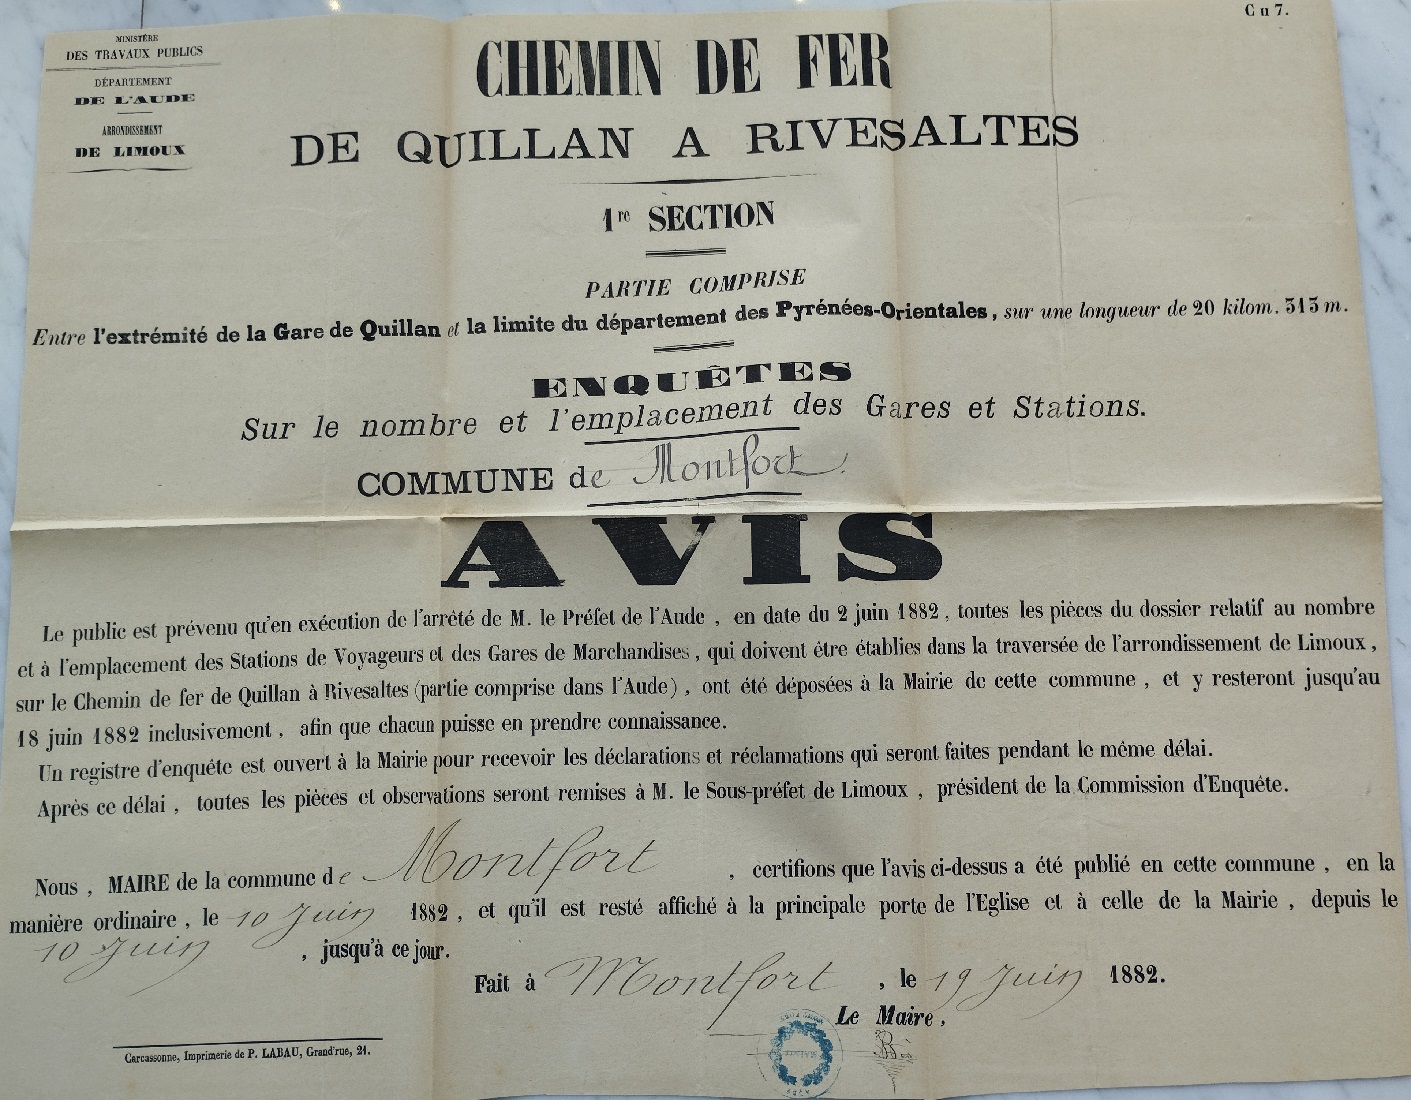 C n 7.
MINISTÈRE
DES TRAVAUX PUBLICS
DÉPARTEMENT
DE L'AUDE
ARRONDISSEMENT
DE LIMOUX
CHEMIN DE FER
DE QUILLAN A RIVESALTES
1re SECTION
PARTIE COMPRISE
Entre l'extrémité de la Gare de Quillan et la limite du département des Pyrénées-Orientales, sur une longueur de 20 kilom. 313 m.
ENQUÊTES
Sur le nombre et l'emplacement des Gares et Stations.
COMMUNE de Montfort.
AVIS
Le public est prévenu qu'en exécution de l'arrêté de M. le Préfet de l'Aude, en date du 2 juin 1882, toutes les pièces du dossier relatif au nombre
et à l'emplacement des Stations de Voyageurs et des Gares de Marchandises, qui doivent être établies dans la traversée de l'arrondissement de Limoux,
sur le Chemin de fer de Quillan à Rivesaltes (partie comprise dans l'Aude), ont été déposées à la Mairie de cette commune, et y resteront jusqu'au
18 juin 1882 inclusivement, afin que chacun puisse en prendre connaissance.
Un registre d'enquête est ouvert à la Mairie pour recevoir les déclarations et réclamations qui seront faites pendant le même délai.
Après ce délai, toutes les pièces et observations seront remises à M. le Sous-préfet de Limoux, président de la Commission d'Enquête.
Nous, MAIRE de la commune de Montfort, certifions que l'avis ci-dessus a été publié en cette commune, en la
manière ordinaire, le 10 Juin 1882, et qu'il est resté affiché à la principale porte de l'Eglise et à celle de la Mairie, depuis le
10 Juin, jusqu'à ce jour.
Fait à Montfort, le 19 Juin 1882.
Le Maire,
Carcassonne, Imprimerie de P. LABAU, Grand'rue, 21.